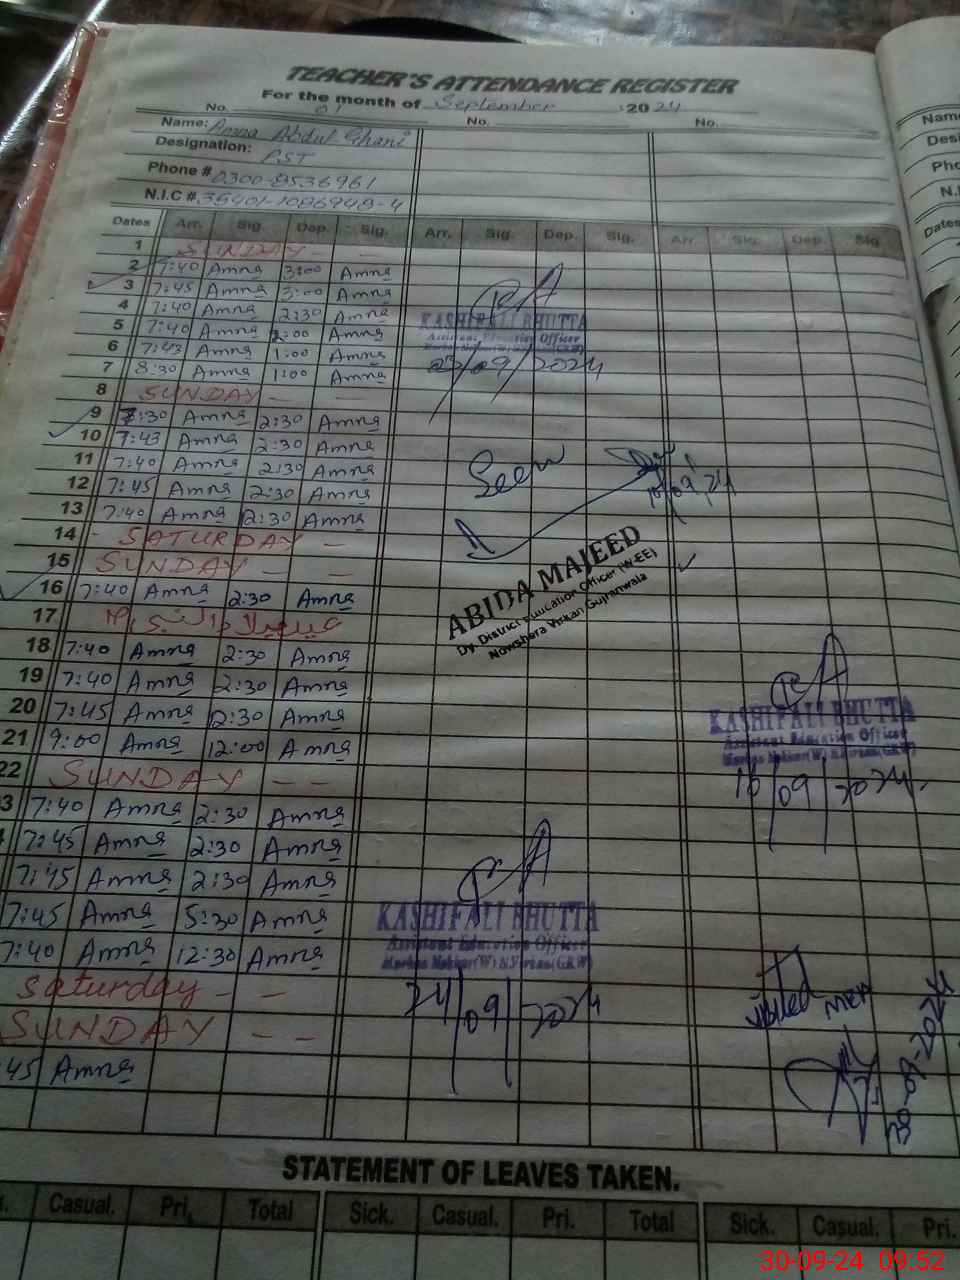 TEACHER'S ATTENDANCE REGISTER
For the month of September 2024
No. 01 No. No.
Name: Amna Abdul Ghani
Designation: PST
Phone # 0300-8536961
N.I.C # 35401-1086948-4
Dates Arr. Sig. Dep. Sig. Arr. Sig. Dep. Sig. Arr. Sig. Dep. Sig
1 SUNDAY - -
2 7:40 Amna 3:00 Amna
3 7:45 Amna 3:00 Amna
4 7:40 Amna 2:30 Amna
5 7:40 Amna 2:00 Amna
6 7:43 Amna 1:00 Amna
7 8:30 Amna 1:00 Amna
8 SUNDAY - -
9 7:30 Amna 2:30 Amna
10 7:43 Amna 2:30 Amna
11 7:40 Amna 2:30 Amna
12 7:45 Amna 2:30 Amna
13 7:40 Amna 2:30 Amna
14 - SATURDAY -
15 SUNDAY - -
16 7:40 Amna 2:30 Amna
17 عید میلاد النبی
18 7:40 Amna 2:30 Amna
19 7:40 Amna 2:30 Amna
20 7:45 Amna 2:30 Amna
21 9:00 Amna 12:00 Amna
22 SUNDAY - -
3 7:40 Amna 2:30 Amna
7:45 Amna 2:30 Amna
7:45 Amna 2:30 Amna
7:45 Amna 5:30 Amna
7:40 Amna 12:30 Amna
Saturday - -
SUNDAY - -
:45 Amna
KASHIF ALI BHUTTA
Assistant Education Officer
/09/2024
Seen
16/09/24
ABIDA MAJEED
Dy. District Education Officer (W-EE)
Nowshera Virkan Gujranwala
KASHIF ALI BHUTTA
Assistant Education Officer
16/09/2024
KASHIF ALI BHUTTA
Assistant Education Officer
24/09/2024
visited MEA
30-09-2024
STATEMENT OF LEAVES TAKEN.
Casual. Pri. Total Sick. Casual. Pri. Total Sick. Casual. Pri.
Name
Desi
Pho
N.I
Dates
30-09-24 09:52